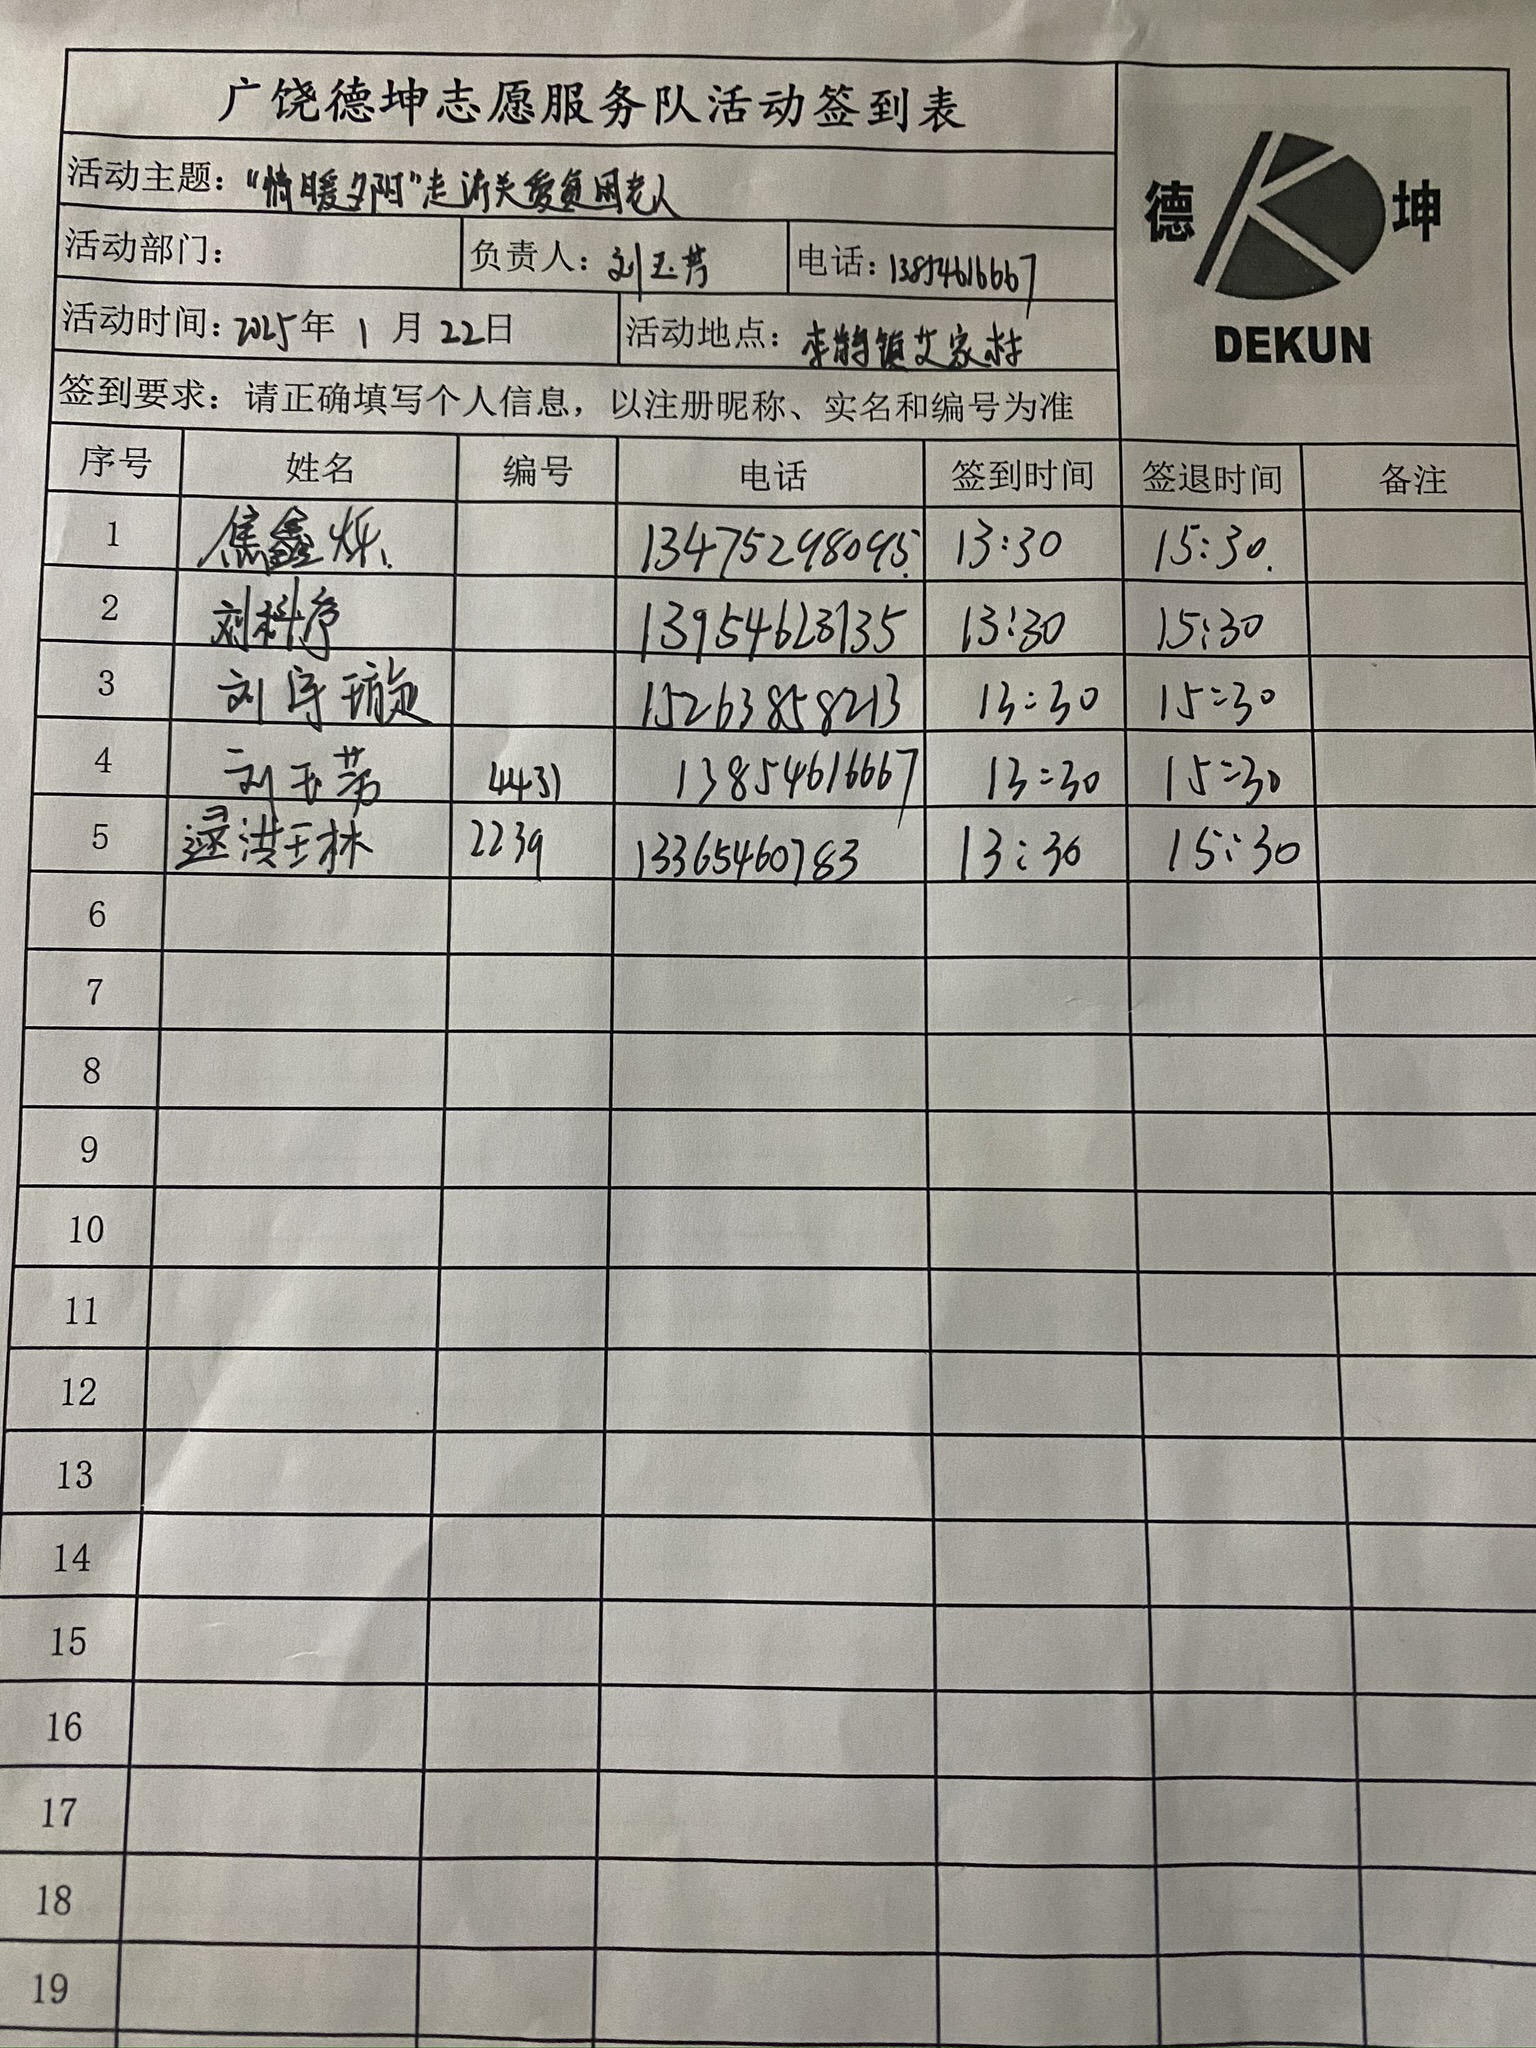 广饶德坤志愿服务队活动签到表
德 坤
DEKUN
活动主题：“情暖夕阳”走访关爱贫困老人
活动部门： 负责人：刘玉芳 电话：13854616667
活动时间：2025年1月22日 活动地点：李鹊镇艾家村
签到要求：请正确填写个人信息，以注册昵称、实名和编号为准
序号 姓名 编号 电话 签到时间 签退时间 备注
1 焦鑫烁 13475298095 13:30 15:30
2 刘科序 13954623135 13:30 15:30
3 刘宇璇 15263858213 13:30 15:30
4 刘玉芳 4431 13854616667 13:30 15:30
5 逯洪林 2239 13365460783 13:30 15:30
6
7
8
9
10
11
12
13
14
15
16
17
18
19